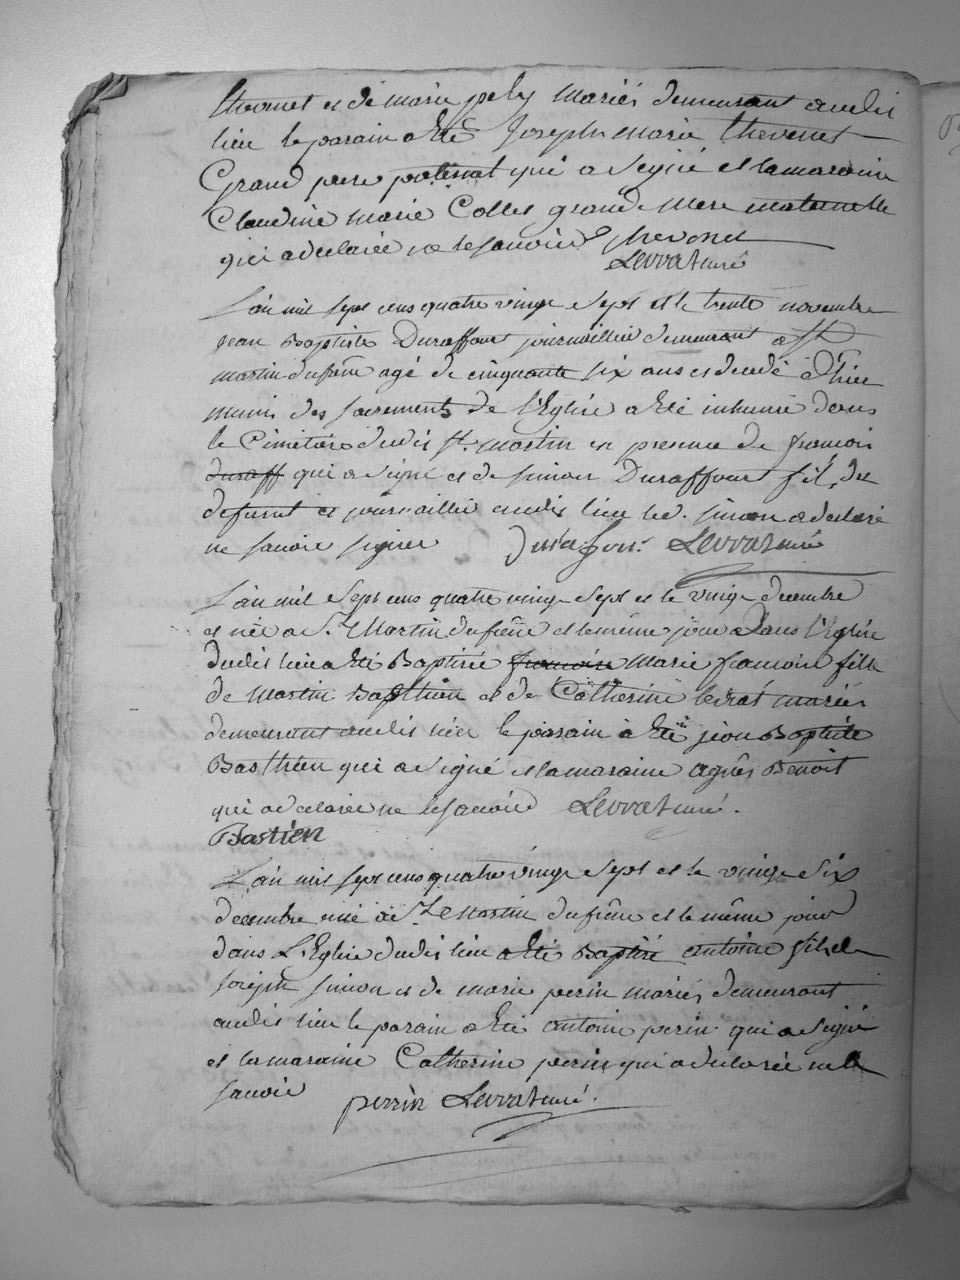 thevenet et de marie pely mariés demeurant audit
lieu le parain a Eté Joseph marie thevenet
Grand pere paternel qui a signé et la maraine
Claudine marie Collet grande Mere maternelle
qui a declarée ne le savoir thevenet
Levrat curé
L'an mil sept cens quatre vingt sept et le trente novembre
jean Baptiste Duraffourt journaillier demeurant a St
martin dufrêne agé de cinquante six ans et decedé d'hier
muni des sacrements de l'Eglise a Eté inhumé dans
le Cimetière dudit St martin en presence de françois
duraff qui a signé et de simon Duraffourt fils du
defunt et journaillier audit lieu led. simon a declaré
ne savoir signer Levrat curé
L'an mil sept cens quatre vingt sept et le vingt decembre
et née a St Martin dufrêne et le même jour Dans l'Eglise
dudit lieu a Eté Baptisée françoise Marie françoise fille
de Martin Basthien et de Catherine levrat mariés
demeurant audit lieu le parain a Eté jean Baptiste
Basthien qui a signé et la maraine agnès Benoit
qui a declarée ne le savoir Levrat curé.
Bastien
L'an mil sept cens quatre vingt sept et le vingt six
decembre né a St Martin dufrêne et le même jour
dans L'Eglise dudit lieu a Eté Baptisé antoine fils de
joseph simon et de marie perin mariés demeurant
audit lieu le parain a Eté antoine perin qui a signé
et la maraine Catherine perin qui a declarée ne le
savoir perrin Levrat curé.